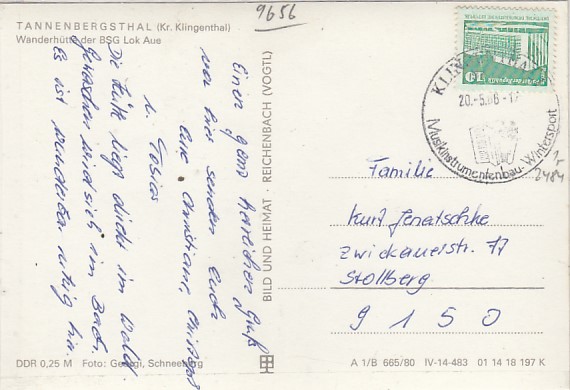 TANNENBERGSTHAL (Kr. Klingenthal)
Wanderhütte der BSG Lok Aue
9656
Einen ganz herzlichen Gruß
von hier senden Euch
Eure Christiane,
u. Tobias
Die Hütte liegt direkt im Wald.
Gewaschen wird sich im Bach.
Es ist wunderbar ruhig hier.
BILD UND HEIMAT · REICHENBACH (VOGTL)
10
20.-5.86-17
Musikinstrumentenbau-Wintersport
2484
Familie
Kurt Jenatschke
Zwickauerstr. 77
Stollberg
9150
DDR 0,25 M Foto: Georgi, Schneeberg
A 1/B 665/80 IV-14-483 01 14 18 197 K